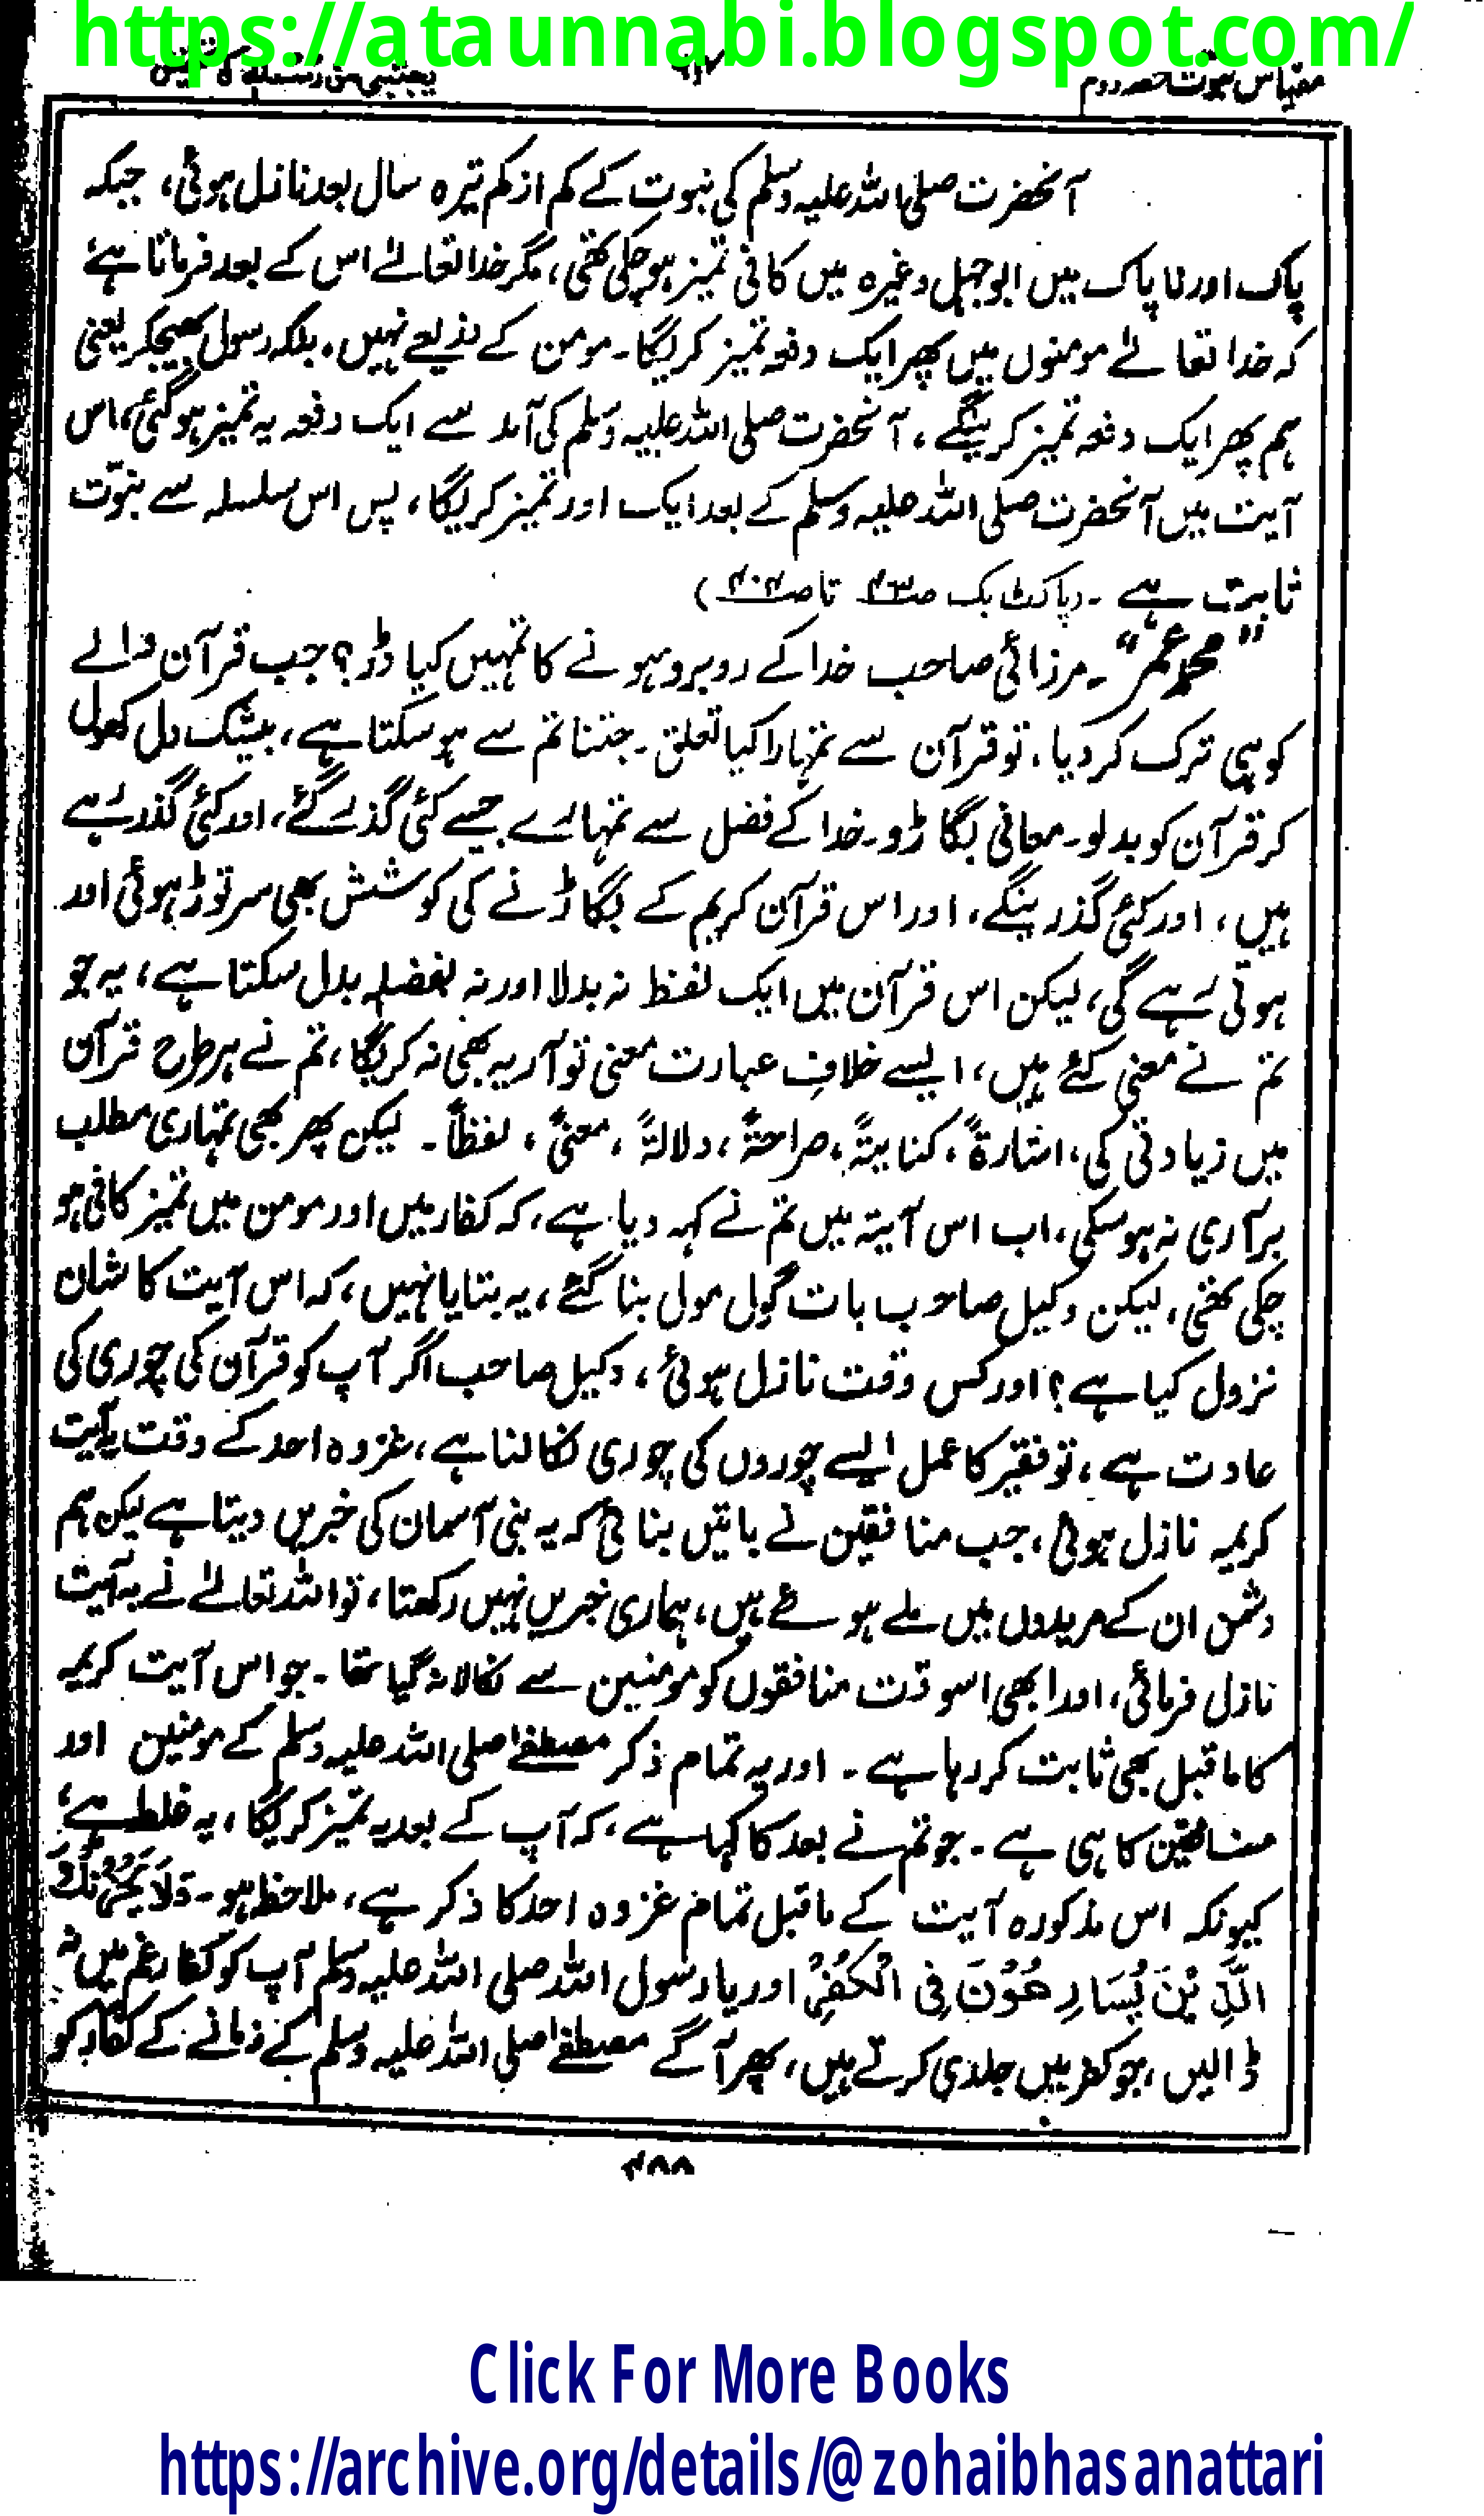 https://ataunnabi.blogspot.com/
مقیاس نبوت حصہ دوم
یجتبی من رسلہ کا
آنحضرت صلی اللہ علیہ وسلم کی نبوت کے کم از کم تیرہ سال بعد نازل ہوئی، جبکہ
پاک اور ناپاک میں ابوجہل وغیرہ میں کافی تمیز ہو چکی تھی، مگر خدا تعالےٰ اس کے بعد فرماتا ہے
کہ خدا تعالےٰ مومنوں میں پھر ایک دفعہ تمیز کریگا۔ مومن کے ذریعے نہیں۔ بلکہ رسول بھیجکر یعنی
ہم پھر ایک دفعہ تمیز کرینگے، آنحضرت صلی اللہ علیہ وسلم کی آمد سے ایک دفعہ یہ تمیز ہو گئی، اس
آیت میں آنحضرت صلی اللہ علیہ وسلم کے بعد ایک اور تمیز کریگا، پس اس سلسلہ سے نبوّت
ثابت ہے ۔ (پاکٹ بک تا)
”محمد عمر“ ۔ مرزائی صاحب خدا کے روبرو ہونے کا تمہیں کیا ڈر؟ جب قرآن والے
کو ہی ترک کر دیا، تو قرآن سے تمہارا کیا تعلق ۔ جتنا تم سے ہو سکتا ہے، بیشک دل کھول
کر قرآن کو بدلو۔ معانی بگاڑو۔ خدا کے فضل سے تمہارے جیسے کئی گذر گئے، اور کئی گذر رہے
ہیں، اور کئی گذرینگے، اور اس قرآن کریم کے بگاڑنے کی کوشش بھی سر توڑ ہوئی اور
ہوتی رہے گی، لیکن اس قرآن میں ایک لفظ نہ بدلا اور نہ بفضلہ بدل سکتا ہے، یہ جو
تم نے معنی کئے ہیں، ایسے خلافِ عبارت معنی تو آریہ بھی نہ کریگا، تم نے ہر طرح قرآن
میں زیادتی کی، اشارۃً، کنایۃً، صراحۃً، دلالۃً، معنیً، لفظاً ۔ لیکن پھر بھی تمہاری مطلب
برآری نہ ہو سکی، اب اس آیۃ میں تم نے کہہ دیا ہے، کہ کفار میں اور مومن میں تمیز کافی ہو
چکی تھی، لیکن وکیل صاحب بات گول مول بنا گئے، یہ بتایا نہیں، کہ اس آیت کا شان
نزول کیا ہے؟ اور کس وقت نازل ہوئی، وکیل صاحب اگر آپ کو قرآن کی چوری کی
عادت ہے، تو فقیر کا عمل ایسے چوروں کی چوری نکالنا ہے، غزوہ احد کے وقت یہ آیت
کریمہ نازل ہوئی، جب منافقین نے باتیں بنائی کہ یہ نبی آسمان کی خبریں دیتا ہے لیکن ہم
دشمن ان کے مریدوں میں ملے ہوئے ہیں، ہماری خبریں نہیں رکھتا، تو اللہ تعالےٰ نے یہ آیت
نازل فرمائی، اور ابھی اسوقت منافقوں کو مومنین سے نکالا نہ گیا تھا ۔ جو اس آیت کریمہ
کا ماقبل بھی ثابت کر رہا ہے ۔ اور یہ تمام ذکر مصطفےٰ صلی اللہ علیہ وسلم کے مومنین اور
منافقین کا ہی ہے ۔ جو تم نے بعد کا کہا ہے، کہ آپ کے بعد یہ تمیز کریگا، یہ غلط ہے،
کیونکہ اس مذکورہ آیت کے ماقبل تمام غزوہ احد کا ذکر ہے، ملاحظہ ہو ۔ وَلَا یَحْزُنْکَ
الَّذِیْنَ یُسَارِعُوْنَ فِی الْکُفْرِ اور یا رسول اللہ صلی اللہ علیہ وسلم آپ کو کفار غم میں نہ
ڈالیں، جو کفر میں جلدی کرتے ہیں، پھر آگے مصطفےٰ صلی اللہ علیہ وسلم کے زمانے کے کفار کو
۴۸۸
Click For More Books
https://archive.org/details/@zohaibhasanattari